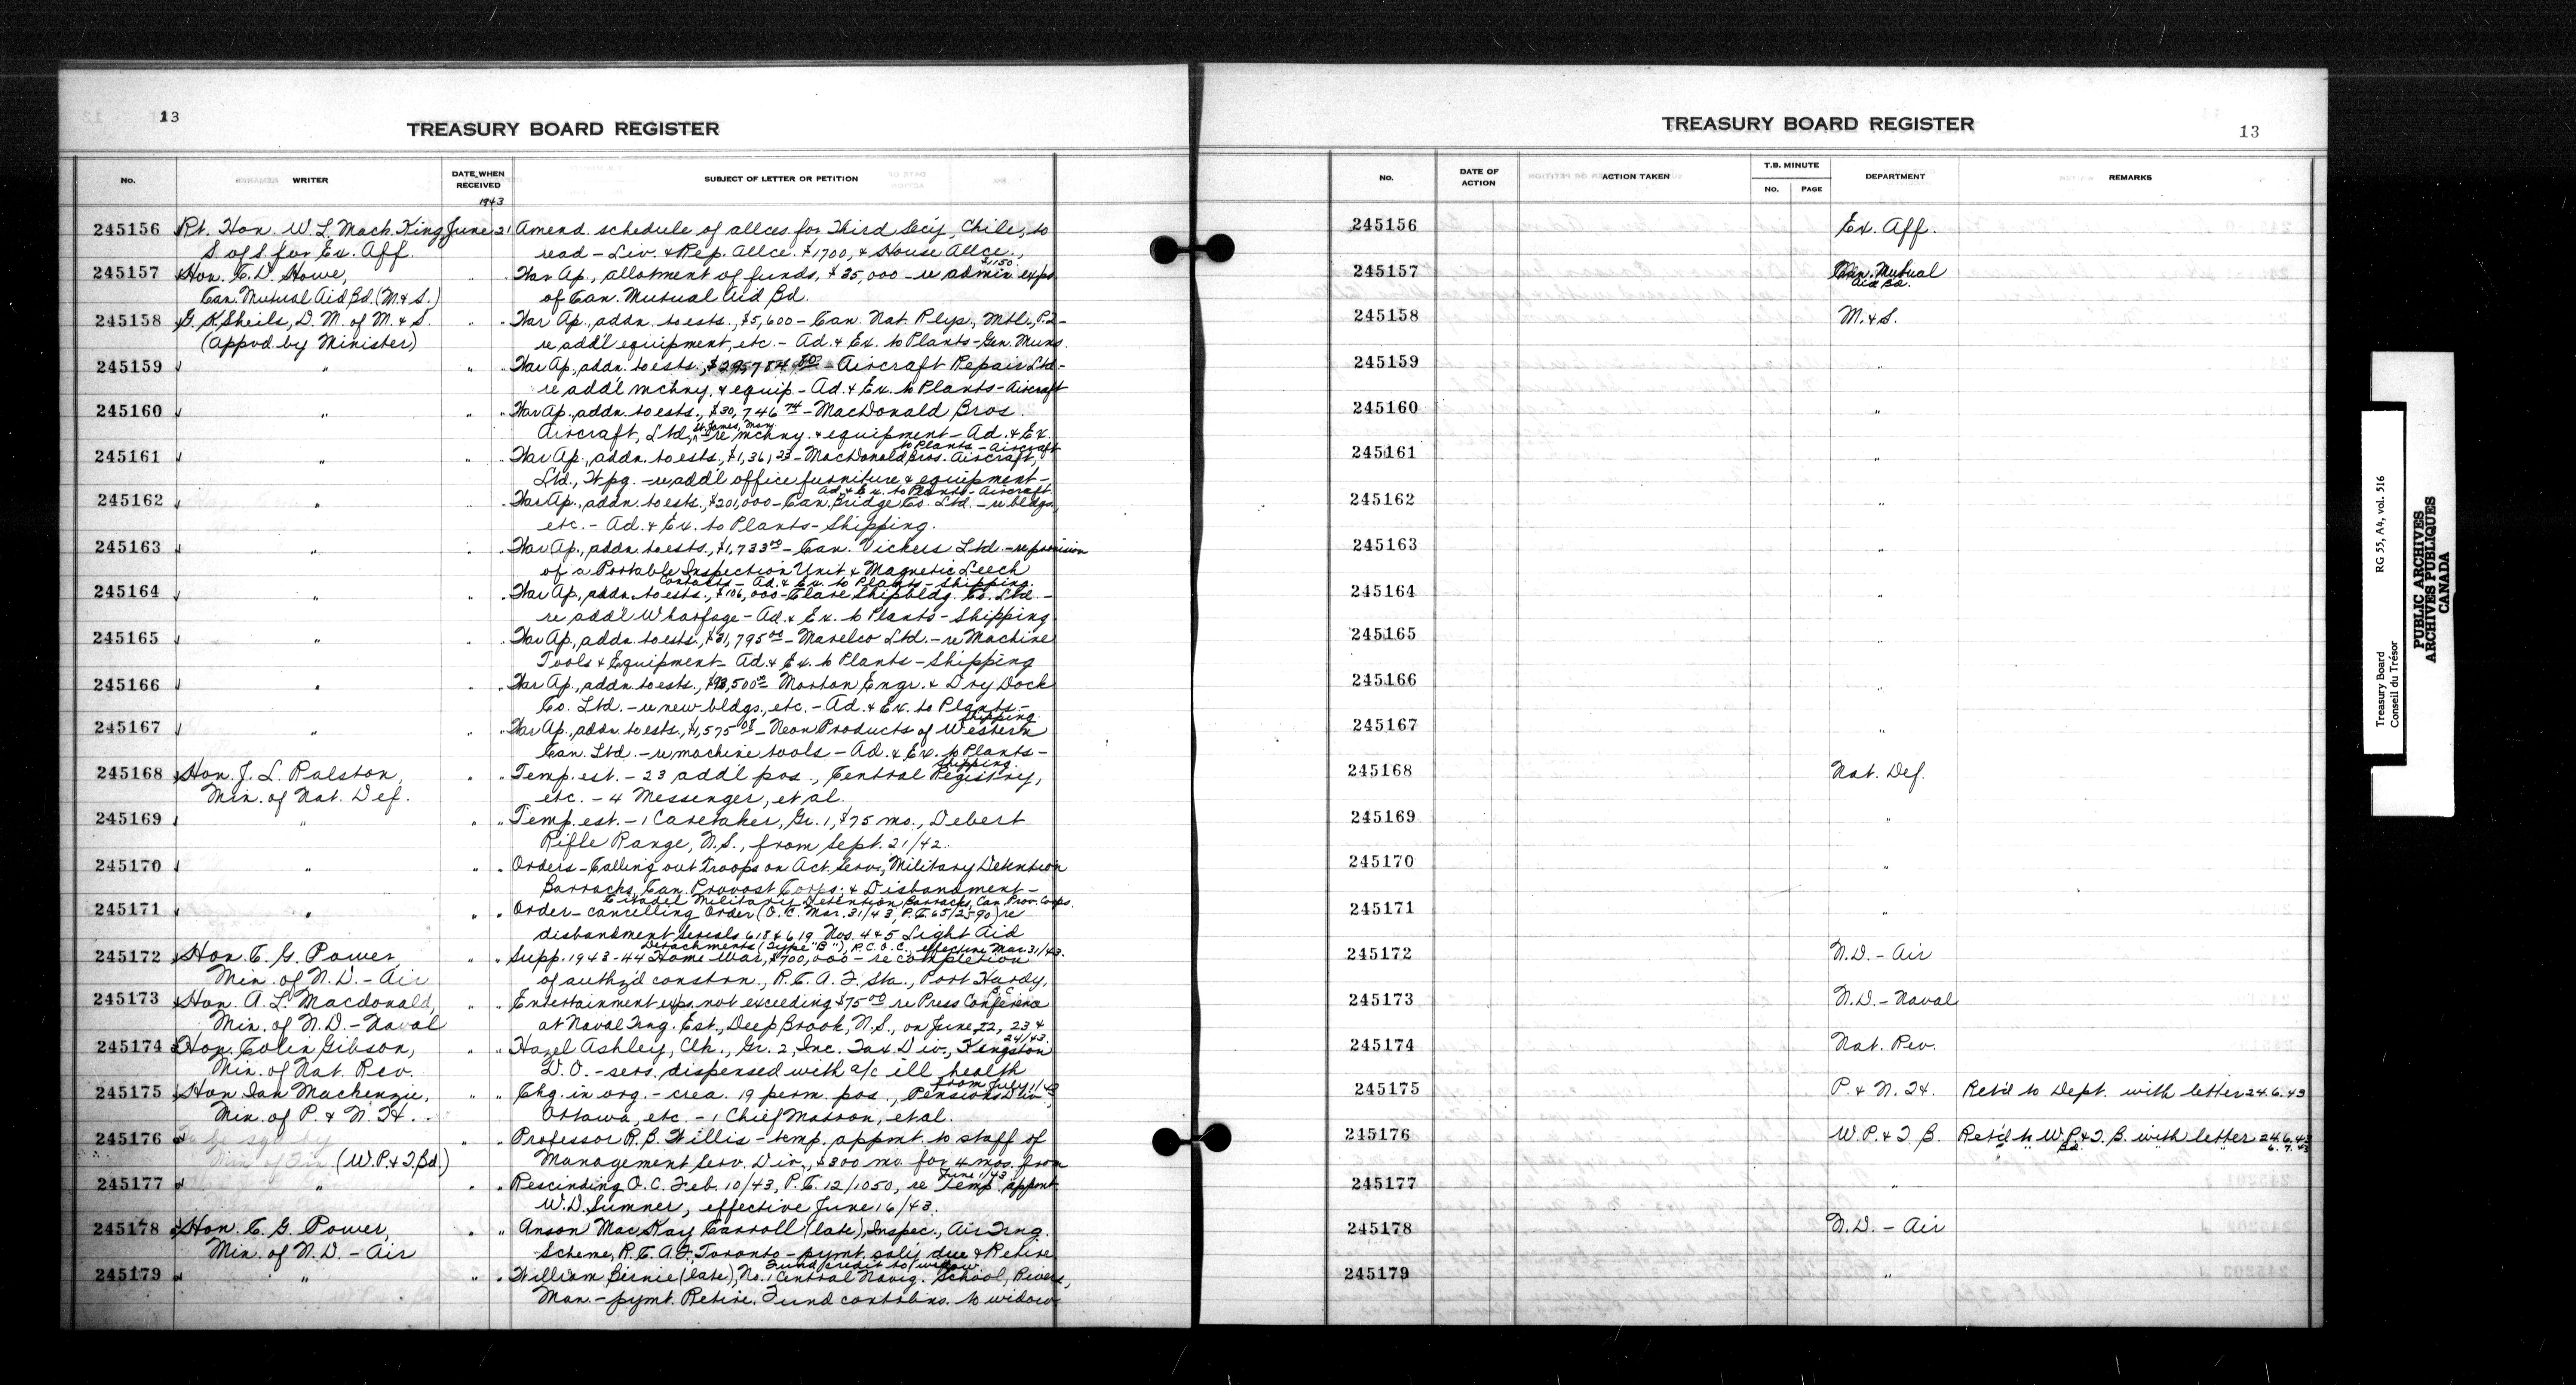 13
TREASURY BOARD REGISTER
No. WRITER DATE WHEN RECEIVED SUBJECT OF LETTER OR PETITION
1943
245156 Rt. Hon. W. L. Mack. King June 21 Amend schedule of allces. for Third Sec'y, Chile, to
S. of S. for Ex. Aff. read - Liv. & Rep. Allce. $1700, & House Allce.,
$1150.
245157 Hon. C. D. Howe, " " War Ap., allotment of funds, $35,000 - re admin. exps.
Can. Mutual Aid Bd. (M. & S.) of Can. Mutual Aid Bd.
245158 G. K. Sheils, D. M. of M. & S. " " War Ap., addn. to ests., $5,600 - Can. Nat. Rlys., Mtl., P.Q. -
(Appvd. by Minister) re add'l equipment, etc. - Ad. & Ex. to Plants - Gen. Muns.
245159 " " " War Ap., addn. to ests., - Aircraft Repair Ltd. -
re add'l mchny. & equip - Ad. & Ex. to Plants - Aircraft
245160 " " " War Ap., addn. to ests., $30,746 74 - MacDonald Bros.
St. James, Man.
Aircraft, Ltd., - re mchny. & equipment - Ad. & Ex.
to Plants - Aircraft
245161 " " " War Ap., addn. to ests., $1,361 23 - MacDonald Bros. Aircraft,
Ltd., Wpg. - re add'l office furniture & equipment -
Ad. & Ex. to Plants - Aircraft.
245162 " " " War Ap., addn. to ests., $201,000 - Can. Bridge Co. Ltd. - re bldgs.,
etc. - Ad. & Ex. to Plants - Shipping.
245163 " " " War Ap., addn. to ests., $1,733 50 - Can. Vickers Ltd. - re provision
of a Portable Inspection Unit & Magnetic Leech
Contacts - Ad. & Ex. to Plants - Shipping.
245164 " " " War Ap., addn. to ests., $106,000 - Clare Shipbldg. Co. Ltd. -
re add'l Wharfage - Ad. & Ex. to Plants - Shipping
245165 " " " War Ap., addn. to ests., $31,795 00 - Marelco Ltd. - re Machine
Tools & Equipment - Ad. & Ex. to Plants - Shipping
245166 " " " War Ap., addn. to ests., Morton Engr. & Dry Dock
Co. Ltd. - re new bldgs., etc. - Ad. & Ex. to Plants -
Shipping.
245167 " " " War Ap., addn. to ests., $1,575 08 - Neon Products of Western
Can. Ltd. - re machine tools - Ad. & Ex. to Plants -
Shipping.
245168 Hon. J. L. Ralston, " " Temp. est. - 23 add'l pos., Central Registry,
Min. of Nat. Def. etc. - 4 Messenger, et al.
245169 " " " Temp. est. - 1 Caretaker, Gr. 1, $75 mo., Debert
Rifle Range, N.S., from Sept. 21/42.
245170 " " " Orders - Calling out Troops on Act. Serv., Military Detention
Barracks, Can. Provost Corps; & Disbandment -
Citadel Military Detention Barracks, Can. Prov. Corps.
245171 " " " Order - cancelling Order (O. C. Mar. 31/43, P. C. 65/2590) re
disbandment Serials 618 & 619 Nos. 4 & 5 Light Aid
Detachments (Type "B"), R.C.O.C., effective Mar. 31/43.
245172 Hon. C. G. Power, " " Supp. 1943-44 Home War, $700,000 - re completion
Min. of N.D. - Air of authz'd constrn., R.C.A.F. Sta., Port Hardy,
B.C.
245173 Hon. A. L. Macdonald, " " Entertainment exps. not exceeding $75 00 re Press Conference
Min. of N.D. - Naval at Naval Trng. Est., Deep Brook, N.S., on June 22, 23 &
24/43.
245174 Hon. Colin Gibson, " " Hazel Ashley, Clk., Gr. 2, Inc. Tax Div., Kingston
Min. of Nat. Rev. D. O. - sers. dispensed with a/c ill health
from July 1/43
245175 Hon. Ian Mackenzie, " " Chg. in org. - crea. 19 perm. pos., Pensions Div.,
Min. of P. & N. H. Ottawa, etc. - 1 Chief Matron, et al.
245176 To be sgd by " " Professor R. B. Willis - temp. appmt. to staff of
Min. of Fin. (W.P. & T. Bd.) Management Serv. Div., $300 mo. for 4 mos. from
June 1/43
245177 " " " Rescinding O. C. Feb. 10/43, P. C. 12/1050, re Temp. appmt.
W. D. Sumner, effective June 16/43.
245178 Hon. C. G. Power, " " Anson MacKay Carroll (late), Inspec., Air Trng.
Min. of N.D. - Air Scheme, R.C.A.F., Toronto - pymt. sal'y due & Retire.
Fund credit to widow
245179 " " " William Birnie (late), No. 1 Central Navig. School, Rivers,
Man. - pymt. Retire. Fund contrbns. to widow
TREASURY BOARD REGISTER
13
No. DATE OF ACTION ACTION TAKEN T.B. MINUTE No. PAGE DEPARTMENT REMARKS
245156 Ex. Aff.
245157 Can. Mutual
Aid Bd.
245158 M. & S.
245159 "
245160 "
245161 "
245162 "
245163 "
245164 "
245165 "
245166 "
245167 "
245168 Nat. Def.
245169 "
245170 "
245171 "
245172 N.D. - Air
245173 N.D. - Naval
245174 Nat. Rev.
245175 P. & N. H. Ret'd to Dept. with letter 24.6.43
245176 W. P. & T. B. Ret'd to W.P. & T. B. with letter 24.6.43
" " Bd. " " 6.7.43
245177 "
245178 N.D. - Air
245179 "
Treasury Board RG 55, A4, vol. 516
Conseil du Trésor
PUBLIC ARCHIVES
ARCHIVES PUBLIQUES
CANADA